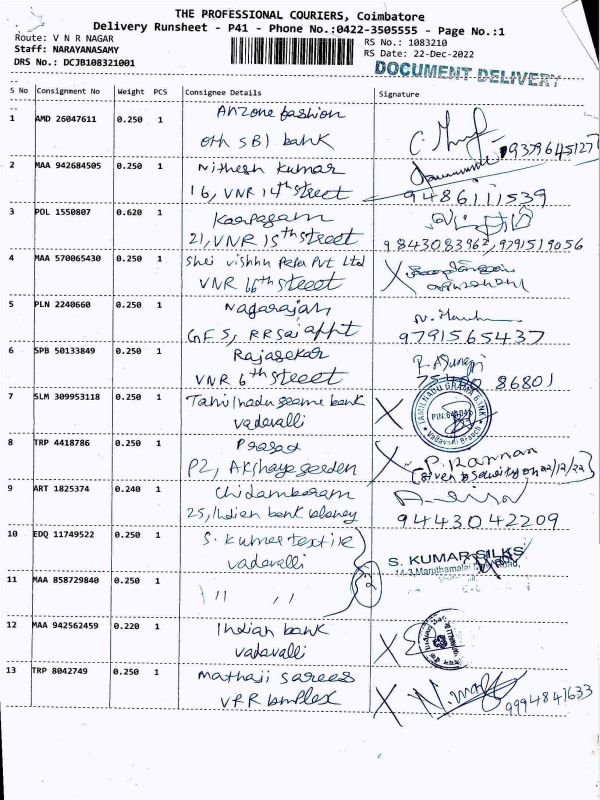 THE PROFESSIONAL COURIERS, Coimbatore
Delivery Runsheet - P41 - Phone No.:0422-3505555 - Page No.:1
Route: V N R NAGAR
RS No.: 1083210
Staff: NARAYANASAMY
RS Date: 22-Dec-2022
DRS No.: DCJB108321001
DOCUMENT DELIVERY
S No Consignment No Weight PCS Consignee Details Signature
1 AMD 26047611 0.250 1 Anzone fashion
oth SBI bank
9379645127
2 MAA 942684505 0.250 1 Nithesh Kumar
16, VNR 14th street 9486111539
3 POL 1550807 0.620 1 Karpagam
21, VNR 15th street 9843083962, 9791519056
4 MAA 570065430 0.250 1 Shri vishnu Pvt Ltd
VNR 16th street
5 PLN 2240660 0.250 1 Nagarajan
GF5, RRSai appt 9791565437
6 SPB 50133849 0.250 1 Rajasekar
VNR 6th street 86801
7 SLM 309953118 0.250 1 Tamilnadu bank
vadavalli
TAMIL NADU GRAMA BANK
8 TRP 4418786 0.250 1 Prasad P. Kannan
P2, Akshaya (given to security on 22/12/22)
9 ART 1825374 0.240 1 Chidambaram
25, Indian bank 9443042209
10 EDQ 11749522 0.250 1 S. Kumar textile
vadavalli
S. KUMAR SILKS
14-3, Maruthamalai Road,
11 MAA 858729840 0.250 1 " "
2
12 MAA 942562459 0.220 1 Indian bank
vadavalli
13 TRP 8042749 0.250 1 Mathaji sarees
VRR complex 9994841633